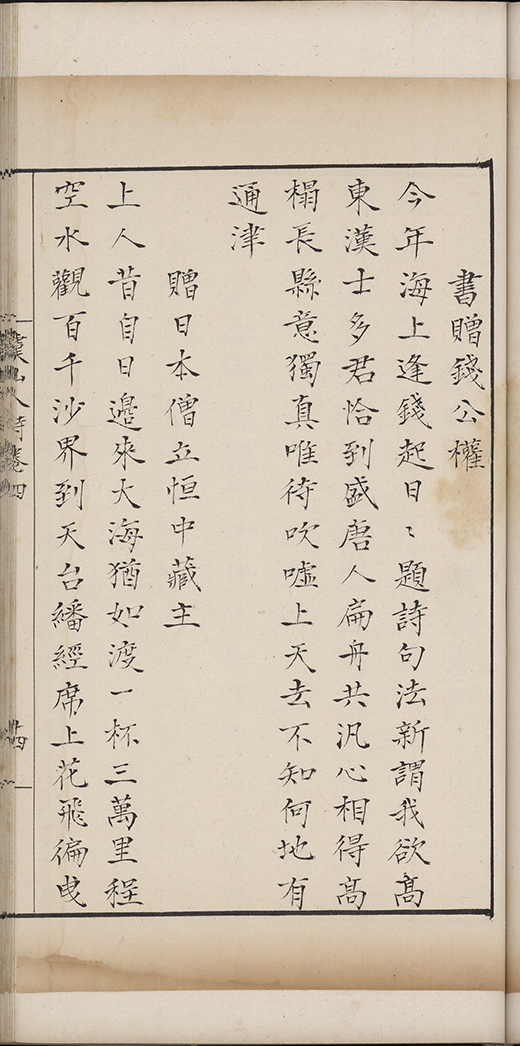 書贈錢公權
今年海上逢錢起日〻題詩句法新謂我欲髙
東漢士多君恰到盛唐人扁舟共汎心相得髙
榻長縣意獨真唯待吹嘘上天去不知何地有
通津
贈日本僧立恒中藏主
上人昔自日邊來大海猶如渡一杯三萬里程
空水觀百千沙界到天台繙經席上花飛徧曳
山人詩卷四